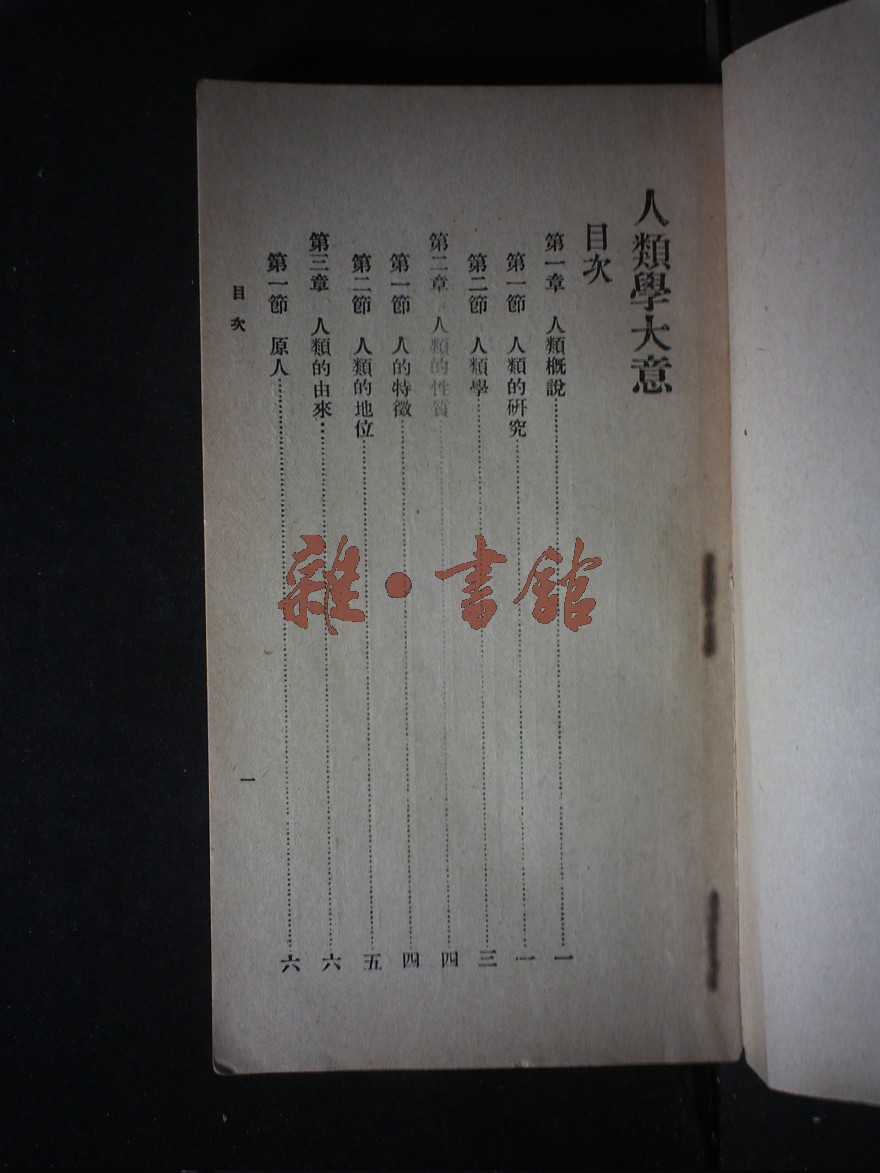 人類學大意
目次
第一章 人類概說……一
第一節 人類的研究……一
第二節 人類學……三
第二章 人類的性質……四
第一節 人的特徵……四
第二節 人類的地位……五
第三章 人類的由來……六
第一節 原人……六
目次
一
雜·書館